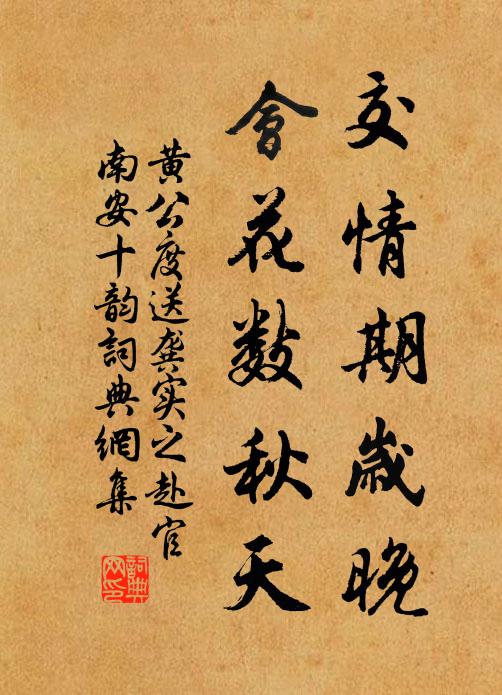 交情期歲晚
會花數秋天
黄公度送龚实之赴官
南安十韵詞典網集
詞典网印